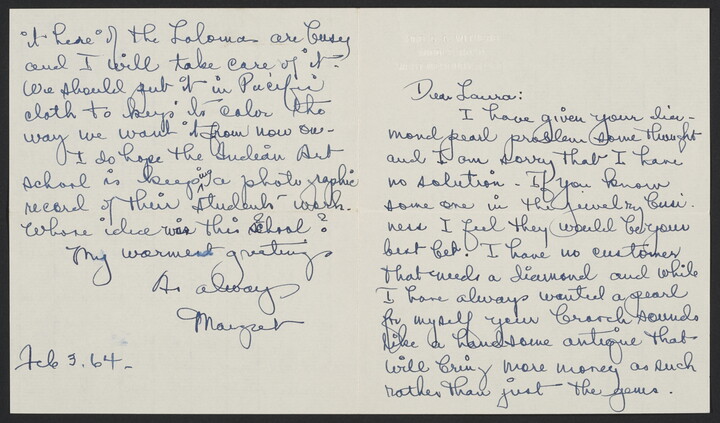 Dear Laura:
I have given your dia-
mond pearl problem some thought
and I am sorry that I have
no solution. If you know
some one in the jewelry busi-
ness I feel they would be your
best bet. I have no customer
that needs a diamond and while
I have always wanted a pearl
for myself your brooch sounds
like a handsome antique that
will bring more money as such
rather than just the gems.
it here if the Lolomas are busy
and I will take care of it.
We should put it in Pacific
cloth to keep its color the
way we want it from now on-
I do hope the Indian Art
School is keeping a photographic
record of their students' work.
Whose idea was this School?
My warmest greetings
As always
Margret
Feb 3. 64-